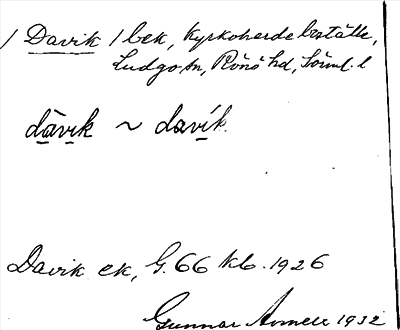 / Davik / bek, Kyrkoherdeboställe,
Ludgo sn, Rönö hd, Söml. l
dàvik ~ davík.
Davik ek, G. 66 Kb. 1926
Gunnar 1932